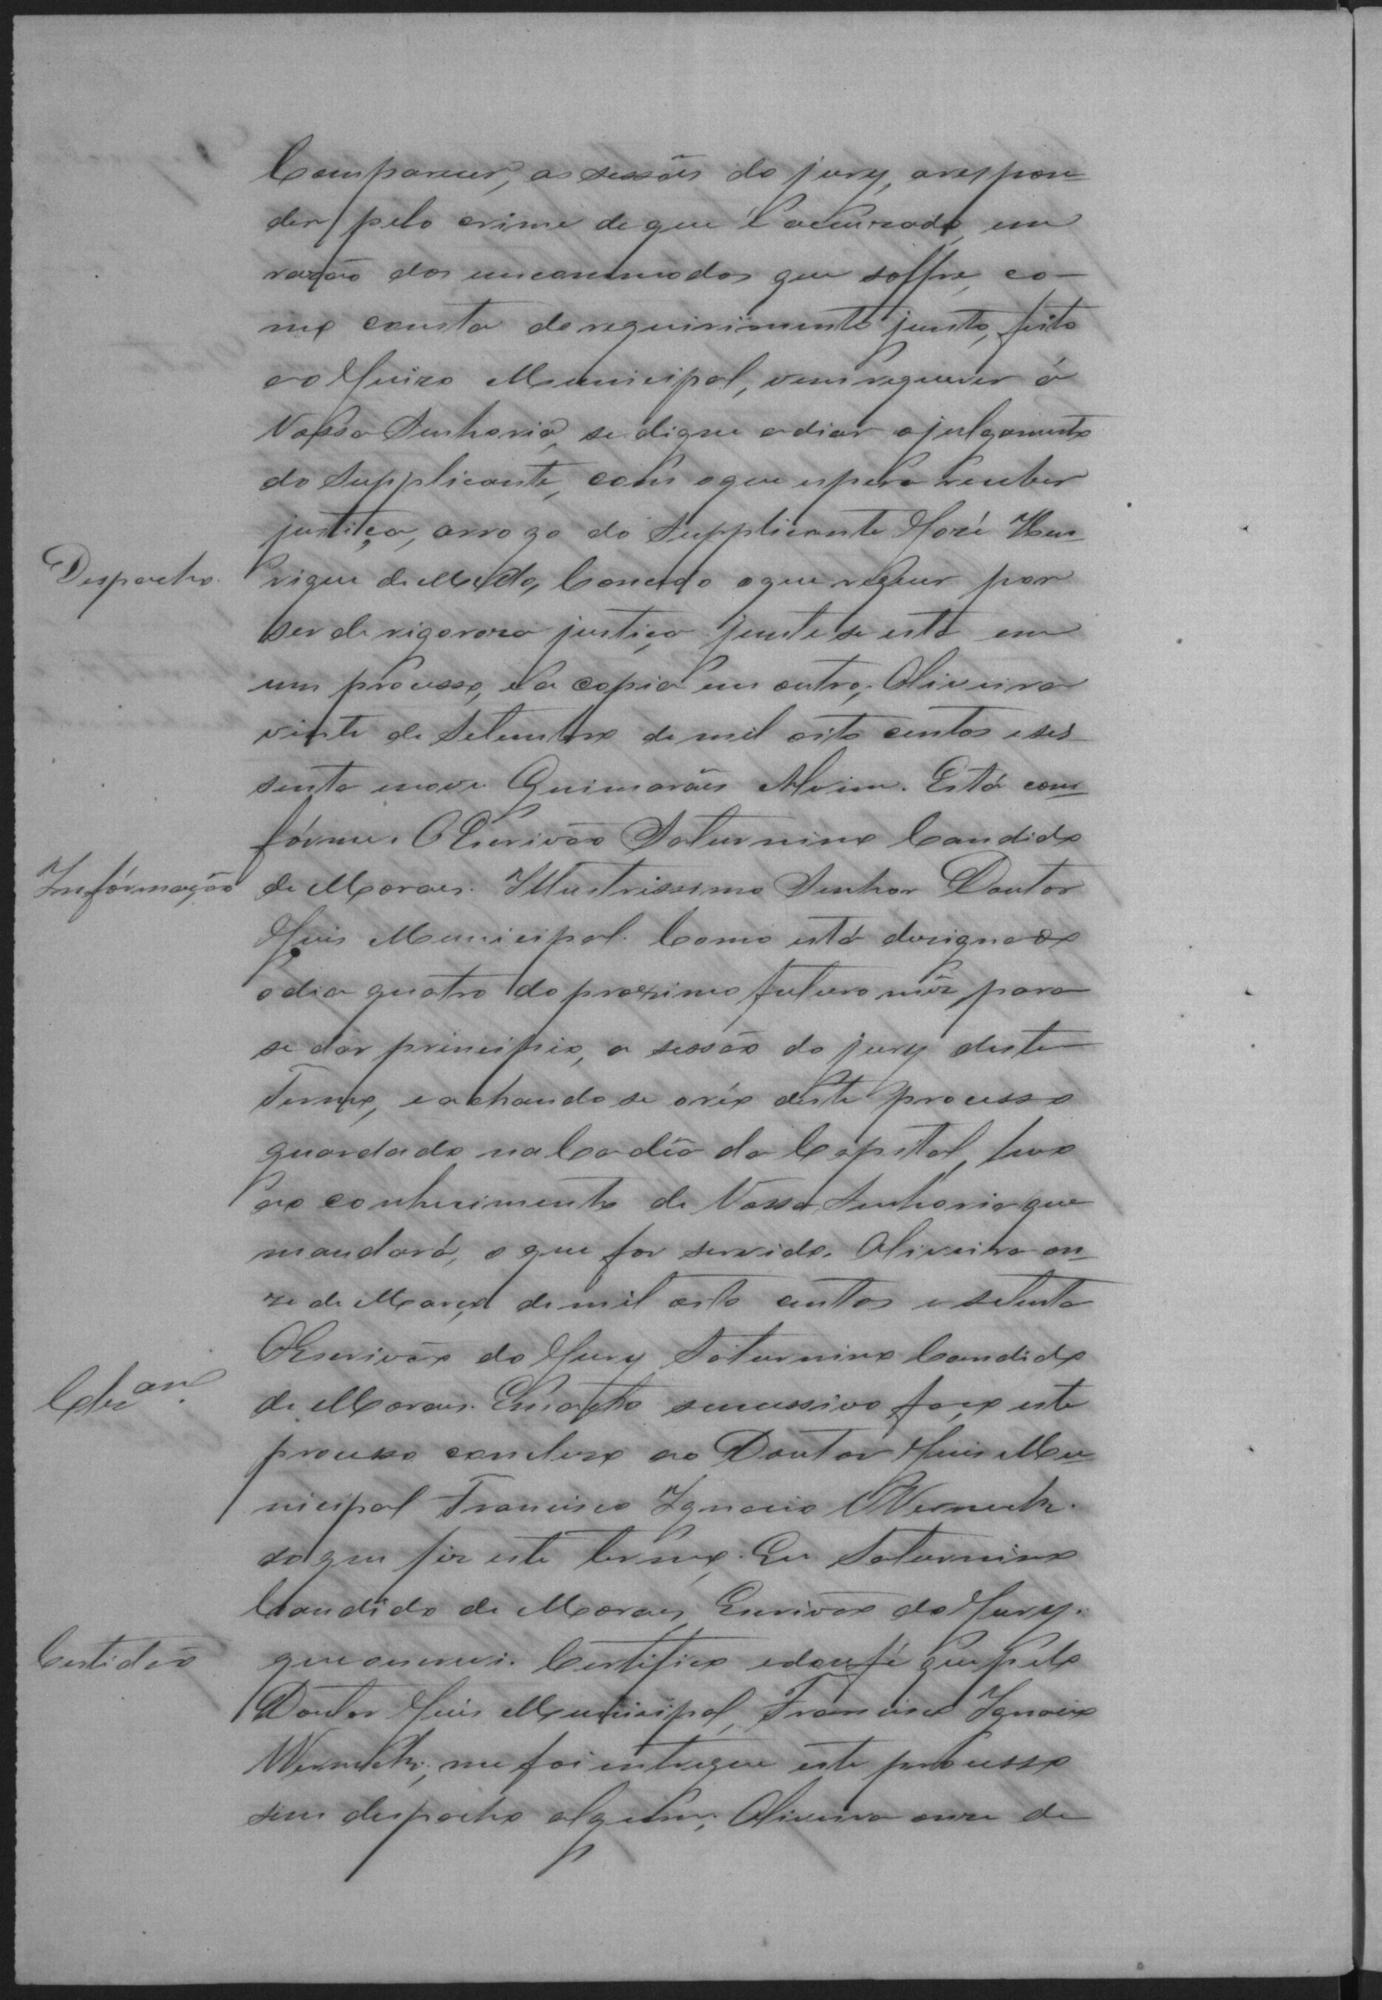 Comparecer, as sessões do jury, a respon-
der pelo crime de que é accuzado, em
razão dos emcommodos que soffre, co-
mo consta do requirimento junto, feito
ao Juizo Municipal, vem requerer á
Vossa Senhoria, se digne adiar o julgamento
do Supplicante, com o que espera receber
justiça, arrogo do Supplicante José Hen-
Despacho. rique de Mello, Concedo o que requer por
ser de rigoroza justiça junte se esta em
um processo, e a copia em outro, Oliveira
vinte de Setembro de mil oito centos e ses
senta e nove Guimarães Alvim. Está con-
fórme. O Escrivão Saturnino Candido
Infórmação de Moraes. Illustrissimo Senhor Doutor
Juis Municipal. Como está designado
o dia quatro do proximo futuro mêz, para
se dar principio, a sessão do jury deste
Termo, e achando se o réo deste processo
guardado na Cadêa da Capital, levo
ao conhecimento de Vossa Senhoria que
mandará, o que for servido. Oliveira on-
ze de Março de mil oito centos e setenta
O Escrivão do Jury Saturnino Candido
Clzam. de Moraes. Em acto sucessivo faço este
processo concluzo ao Doutor Juis Mu-
nicipal Francisco Ignacio Werneck.
do que fiz este termo, Eu Saturnino
Candido de Moraes, Escrivão do Jury.
Certidão que escrevi. Certifico e dou fé que pelo
Doutor Juis Municipal, Francisco Ignacio
Werneck, me foi entregue este processo
sem despacho algum, Oliveira onze de